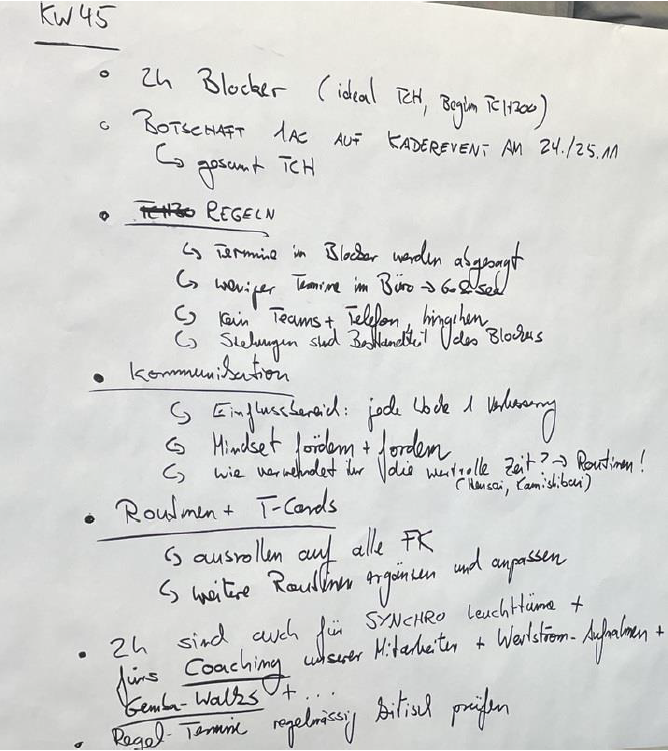 KW45
2h Blocker (ideal TCH, Beginn TCH200)
BOTSCHAFT 1AC AUF KADEREVENT AM 24./25.11
gesamt TCH
REGELN
Termine im Blocker werden abgesagt
weniger Termine im Büro → Go & see
Kein Teams + Telefon, hingehen
Stehungen sind Bestandteil des Blockers
Kommunikation
Einflussbereich: jede Woche 1 Verbesserung
Mindset fördern + fordern
wie verwendet ihr die wertvolle Zeit? → Routinen!
(Hansei, Kamishibai)
Routinen + T-Cards
ausrollen auf alle FK
weitere Routinen ergänzen und anpassen
2h sind auch für SYNCHRO Leuchttürme +
fürs Coaching unserer Mitarbeiter + Wertstrom-Aufnahmen +
Gemba-Walks + ...
Regel-Termine regelmässig kritisch prüfen